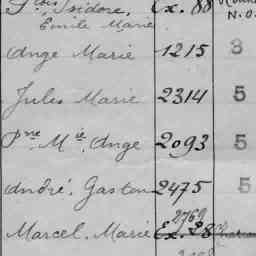 Isidore. Ex. 88
Emile Marie N.O.
Ange Marie 1215 3
Jules Marie 2314 5
Pre Mie Ange 2093 5
André. Gaston 2475 5
2769
Marcel. Marie Ex. 28